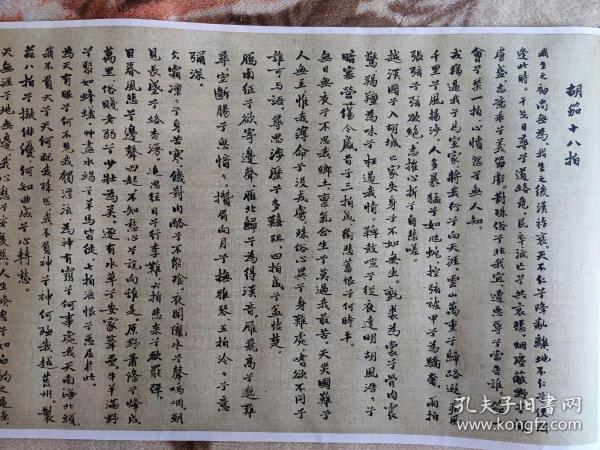 胡笳十八拍
我生之初尚無為我生之後漢祚衰天不仁兮降亂離地不仁兮使我
逢此時干戈日尋兮道路危民卒流亡兮共哀悲烟塵蔽野兮
虜盛志意乖兮義節虧對殊俗兮非我宜遭惡辱兮當告誰笳一
會兮琴一拍心憤怨兮無人知
戎羯逼我兮為室家將我行兮向天涯雲山萬重兮歸路遐疾風
千里兮風揚沙人多暴猛兮如虺蛇控弦被甲兮為驕奢兩拍
張弦兮弦欲絕志摧心折兮自悲嗟
越漢國兮入胡城亡家失身兮不如無生氈裘為裳兮骨肉震
驚羯羶為味兮枉遏我情鞞鼓喧兮從夜達明胡風浩浩兮
暗塞營傷今感昔兮三拍成銜悲畜恨兮何時平
無日無夜兮不思我鄉土稟氣含生兮莫過我最苦天災國亂兮
人無主唯我薄命兮沒戎虜殊俗心異兮身難處嗜欲不同兮
誰可與語尋思涉歷兮多難阻四拍成兮益悽楚
雁南征兮欲寄邊聲雁北歸兮為得漢音雁飛高兮邈難
尋空斷腸兮思愔愔攢眉向月兮撫雅琴五拍泠泠兮意
彌深
冰霜凜凜兮身苦寒飢對肉酪兮不能飡夜聞隴水兮聲嗚咽朝
見長城兮路杳漫追思往日兮行李難六拍悲來兮欲罷彈
日暮風悲兮邊聲四起不知愁心兮說向誰是原野蕭條兮烽戍
萬里俗賤老弱兮少壯為美逐有水草兮安家葺壘牛羊滿野
兮聚如蜂蟻草盡水竭兮羊馬皆徙七拍流恨兮惡居於此
為天有眼兮何不見我獨漂流為神有靈兮何事處我天南海北頭
我不負天兮天何配我殊匹我不負神兮神何殛我越荒州製
茲八拍兮擬俳優何知曲成兮心轉愁
天無涯兮地無邊我心愁兮亦復然人生倏忽兮如白駒之過隙
孔夫子旧书网
kongfz.com